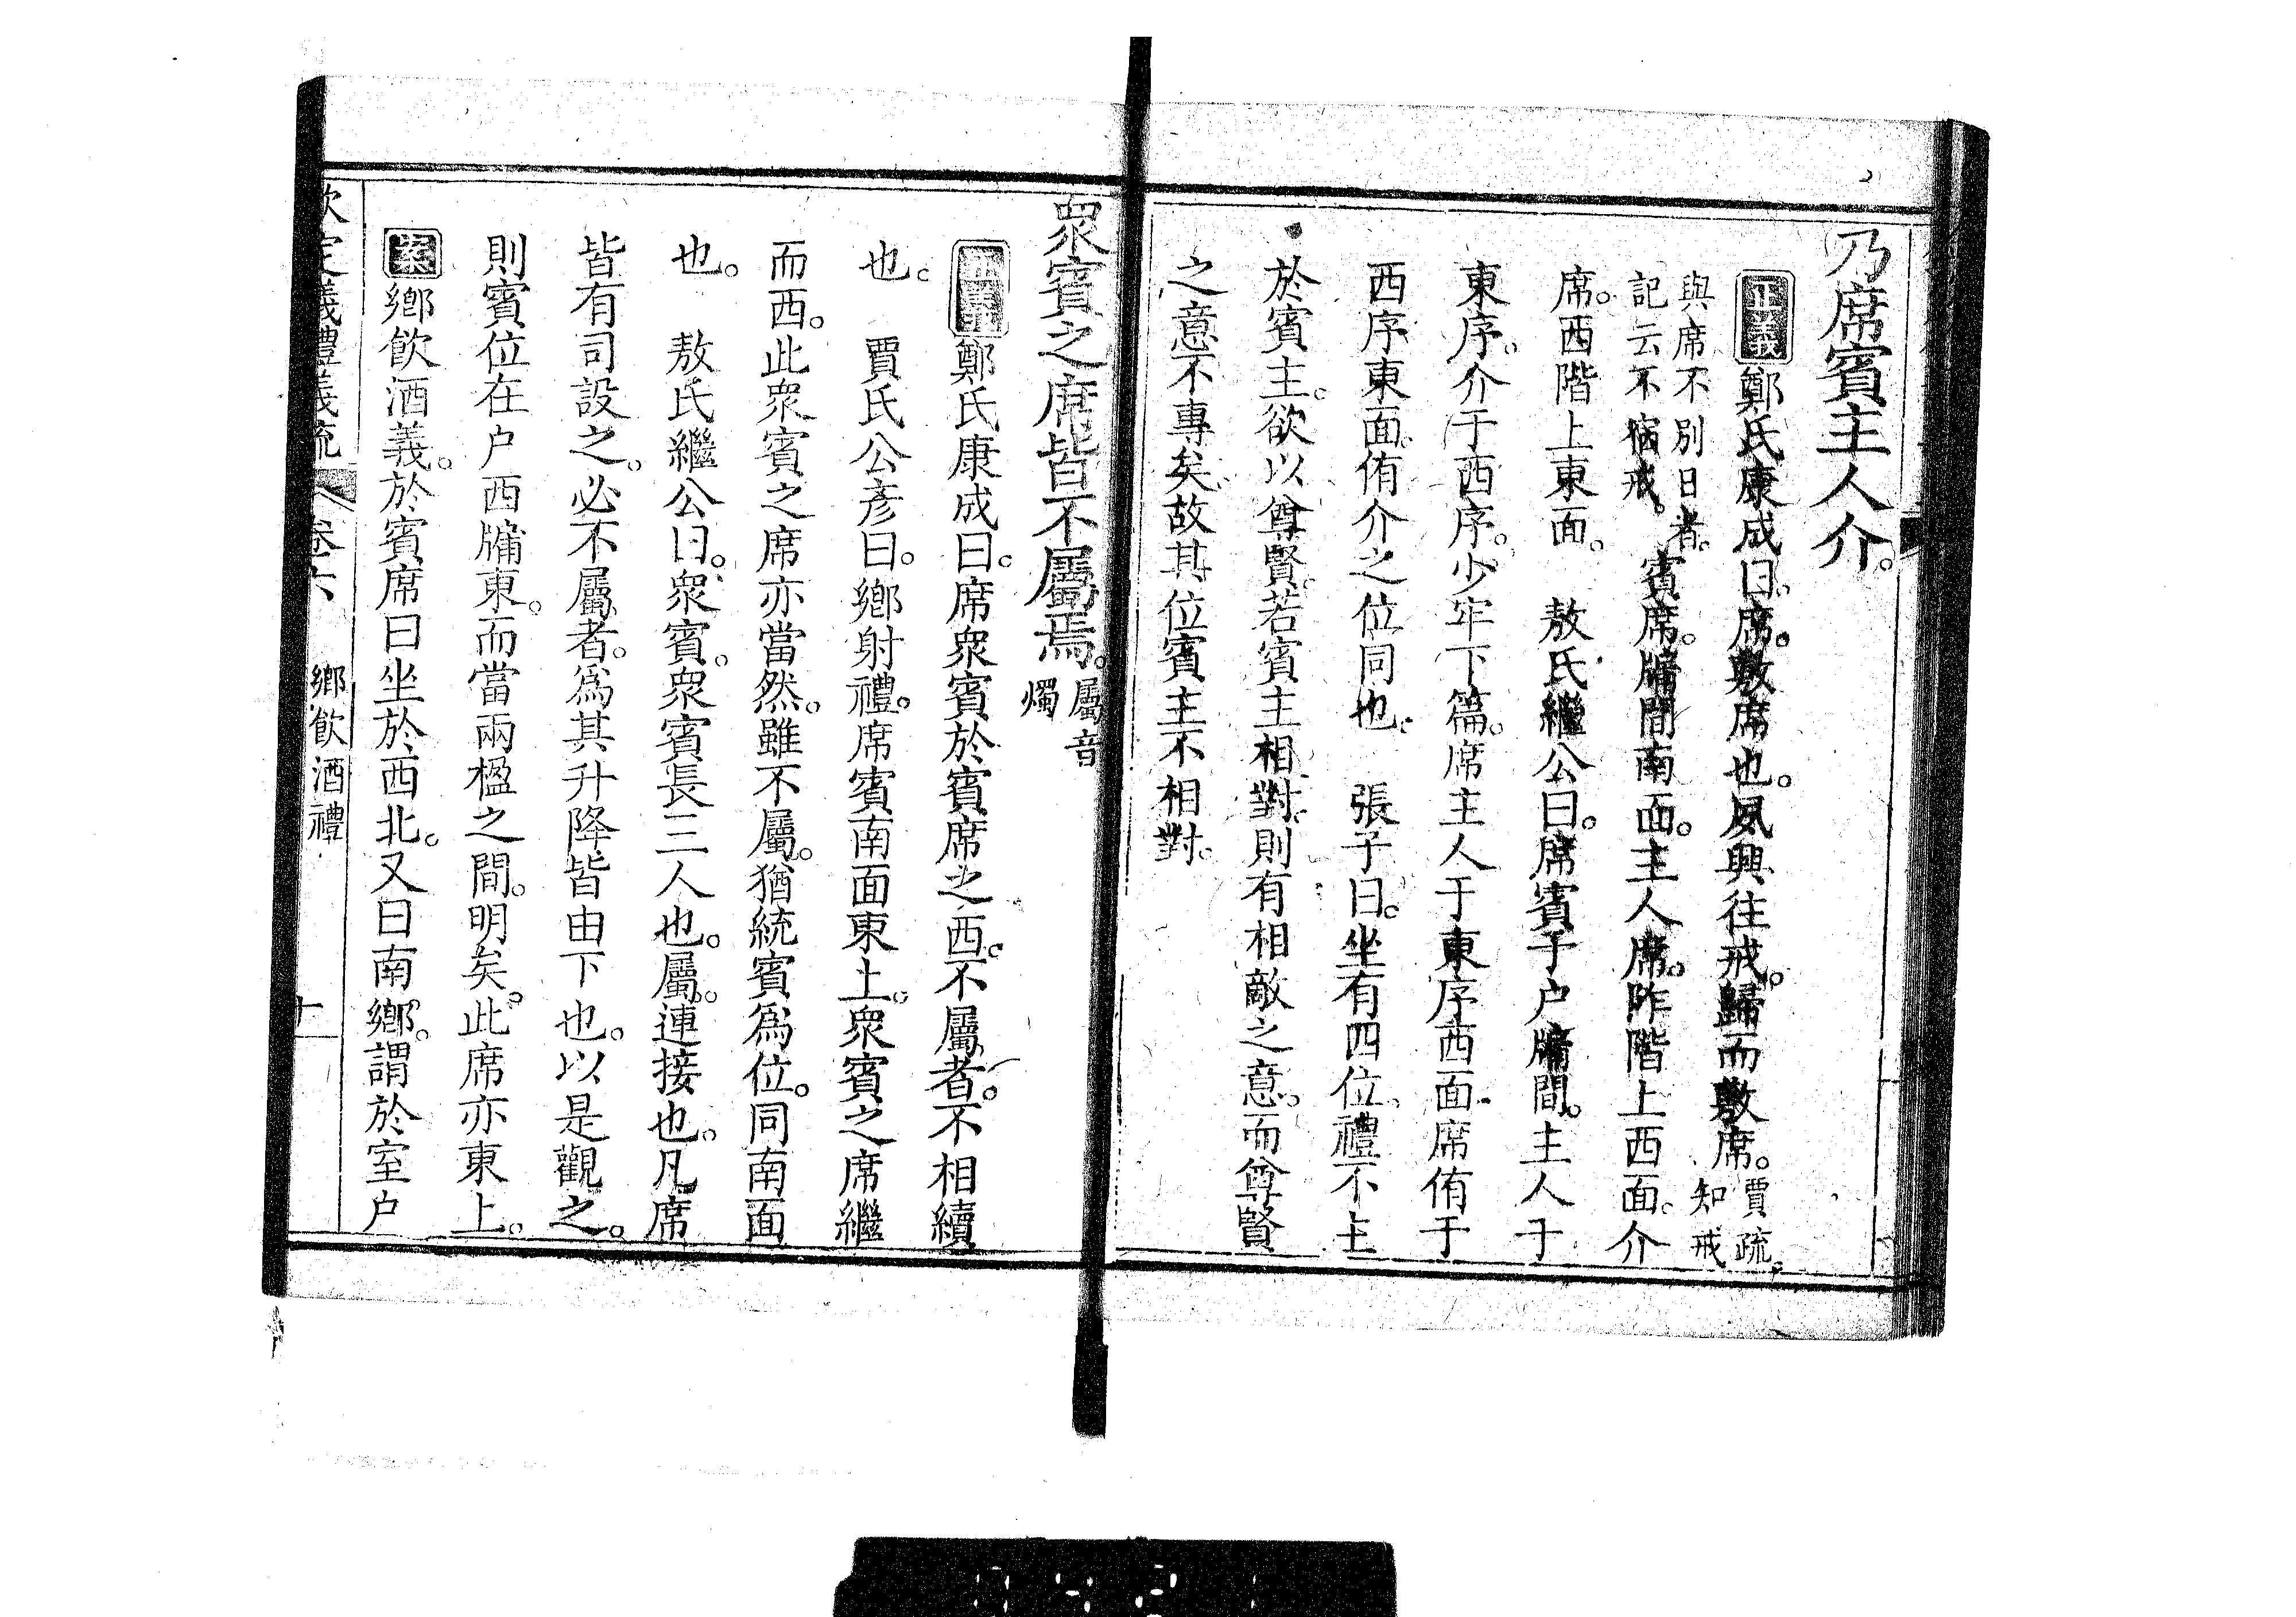 乃席賓主人介。
正義鄭氏康成曰。席。敷席也。夙興往戒。歸而敷席。賈疏。知戒
與席不別日者。記云不宿戒。賓席。牖間南面。主人席。阼階上西面。介
席。西階上東面。 敖氏繼公曰。席賓于户牖間。主人于
東序。介于西序。少牢下篇。席主人于東序西面。席侑于
西序東面。侑介之位同也。 張子曰。坐有四位。禮不主
於賓主。欲以尊賢。若賓主相對。則有相敵之意。而尊賢
之意不專矣。故其位賓主不相對。
眾賓之席皆不屬焉。屬音燭
正義鄭氏康成曰。席眾賓於賓席之西。不屬者。不相續
也。 賈氏公彥曰。鄉射禮。席賓南面東上。眾賓之席繼
而西。此眾賓之席亦當然。雖不屬。猶統賓為位。同南面
也。 敖氏繼公曰。眾賓。眾賓長三人也。屬。連接也。凡席
皆有司設之。必不屬者。為其升降皆由下也。以是觀之。
則賓位在户西牖東。而當兩楹之間。明矣。此席亦東上。
案鄉飲酒義。於賓席曰坐於西北。又曰南鄉。謂於室户
欽定義禮義疏 卷六 鄉飲酒禮 十